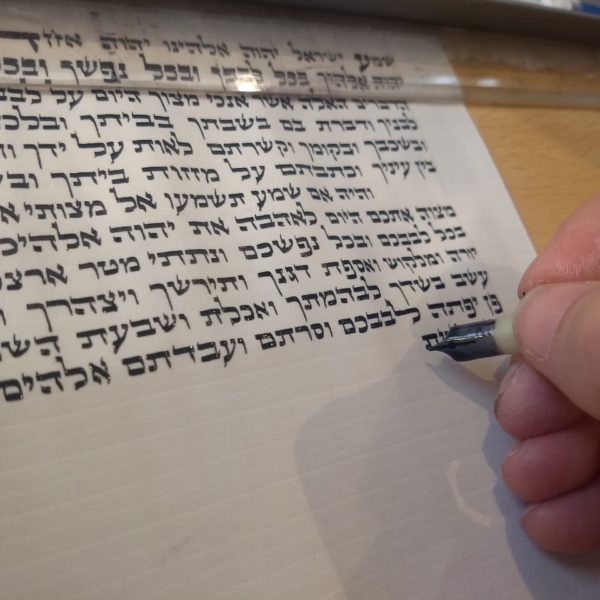 שמע ישראל יהוה אלהינו יהוה אחד
יהוה אלהיך בכל לבבך ובכל נפשך ובכל
הדברים האלה אשר אנכי מצוך היום על לבבך
לבניך ודברת בם בשבתך בביתך ובלכת
ובשכבך ובקומך וקשרתם לאות על ידך
בין עיניך וכתבתם על מזזות ביתך ובש
והיה אם שמע תשמעו אל מצותי א
מצוה אתכם היום לאהבה את יהוה אלהיכ
בכל לבבכם ובכל נפשכם ונתתי מטר ארצכ
יורה ומלקוש ואספת דגנך ותירשך ויצהרך ו
עשב בשדך לבהמתך ואכלת ושבעת השמ
פן יפתה לבבכם וסרתם ועבדתם אלהים